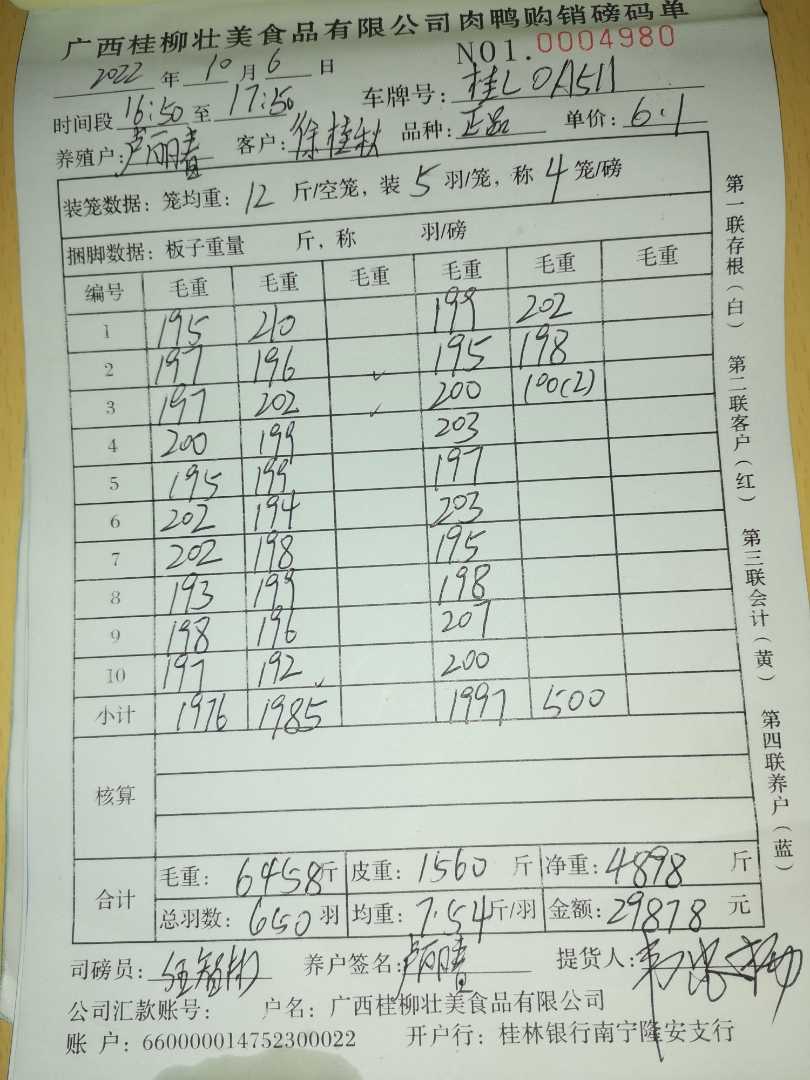 广西桂柳壮美食品有限公司肉鸭购销磅码单
NO1.0004980
2022 年 10 月 6 日
时间段 16:50 至 17:50 车牌号: 桂L0A511
养殖户: 卢丽春 客户: 徐桂秋 品种: 正品 单价: 6.1
装笼数据: 笼均重: 12 斤/空笼, 装 5 羽/笼, 称 4 笼/磅
捆脚数据: 板子重量 斤, 称 羽/磅
编号 毛重 毛重 毛重 毛重 毛重 毛重
1 195 210 199 202
2 197 196 195 198
3 197 202 200 100(2)
4 200 199 203
5 195 199 197
6 202 194 203
7 202 198 195
8 193 199 198
9 198 196 207
10 197 192 200
小计 1976 1985 1997 500
核算
合计
毛重: 6458 斤 皮重: 1560 斤 净重: 4898 斤
总羽数: 650 羽 均重: 7.54 斤/羽 金额: 29878 元
司磅员: 养户签名: 卢丽春 提货人:
公司汇款账号: 户名: 广西桂柳壮美食品有限公司
账 户: 660000014752300022 开户行: 桂林银行南宁隆安支行
第一联存根(白) 第二联客户(红) 第三联会计(黄) 第四联养户(蓝)